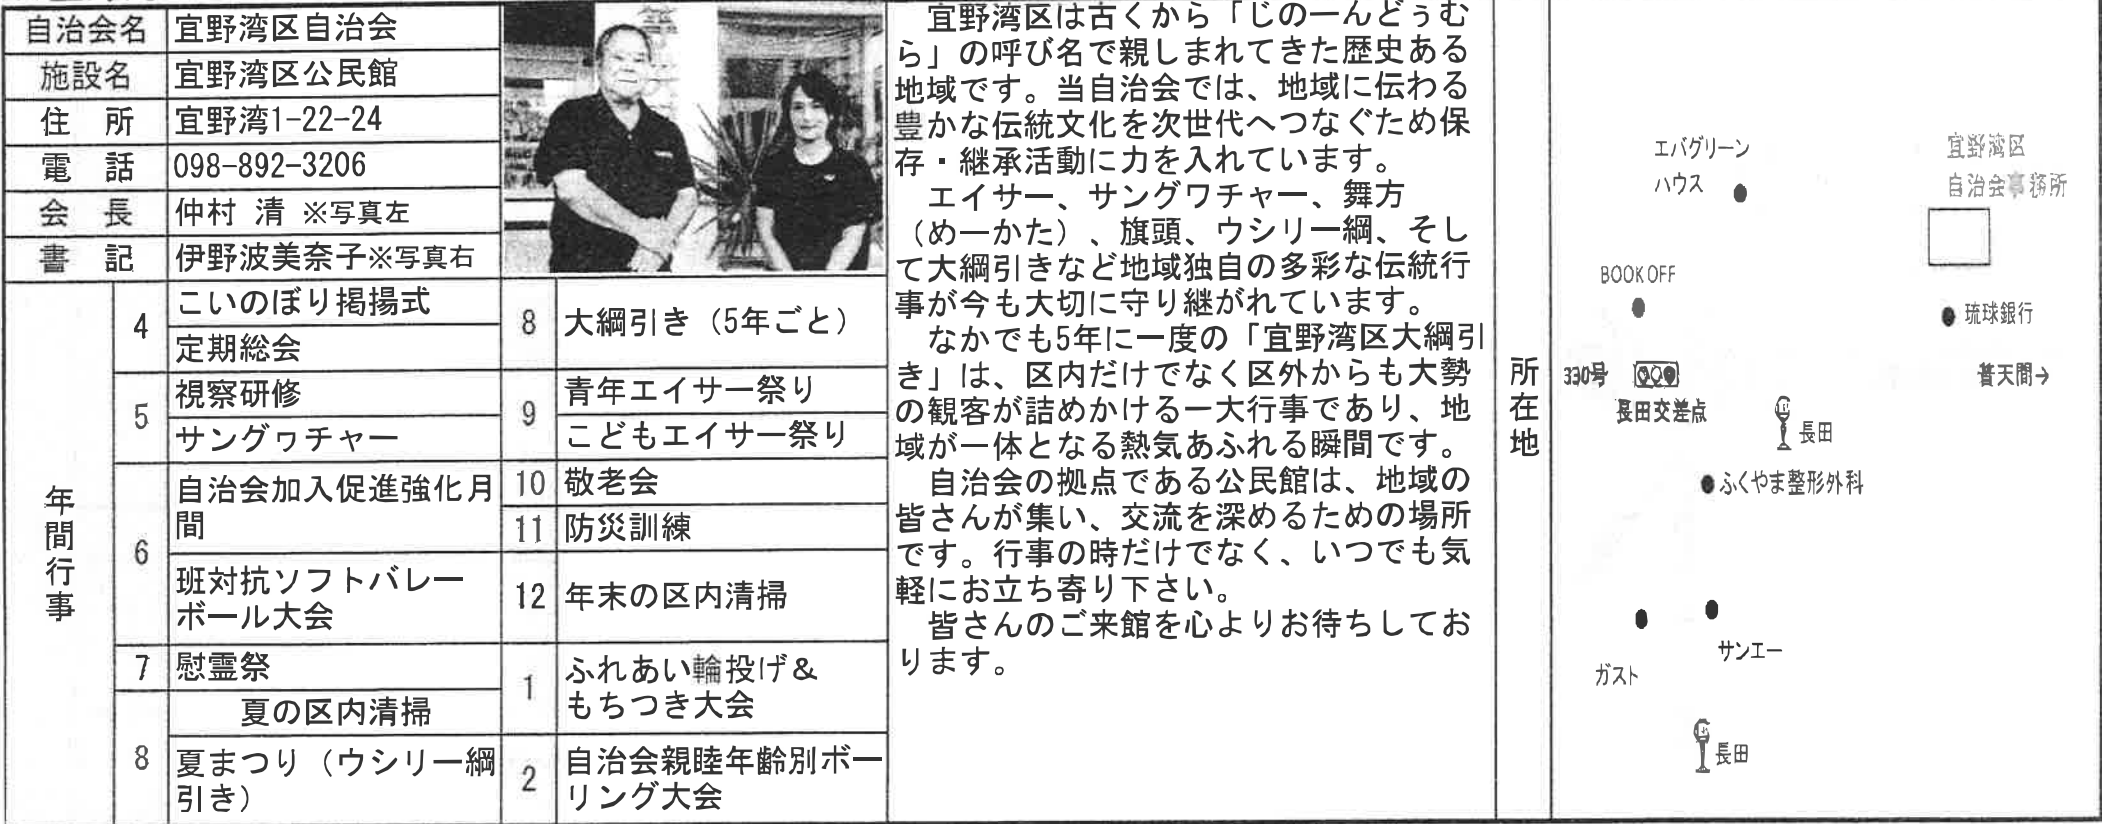 自治会名 宜野湾区自治会
施設名 宜野湾区公民館
住 所 宜野湾1-22-24
電 話 098-892-3206
会 長 仲村 清 ※写真左
書 記 伊野波美奈子※写真右
年間行事
4 こいのぼり掲揚式
定期総会
5 視察研修
サングヮチャー
6 自治会加入促進強化月
間
班対抗ソフトバレー
ボール大会
7 慰霊祭
8 夏の区内清掃
夏まつり（ウシリー綱
引き）
8 大綱引き（5年ごと）
9 青年エイサー祭り
こどもエイサー祭り
10 敬老会
11 防災訓練
12 年末の区内清掃
1 ふれあい輪投げ＆
もちつき大会
2 自治会親睦年齢別ボー
リング大会
宜野湾区は古くから「じのーんどぅむ
ら」の呼び名で親しまれてきた歴史ある
地域です。当自治会では、地域に伝わる
豊かな伝統文化を次世代へつなぐため保
存・継承活動に力を入れています。
エイサー、サングワチャー、舞方
（めーかた）、旗頭、ウシリー綱、そし
て大綱引きなど地域独自の多彩な伝統行
事が今も大切に守り継がれています。
なかでも5年に一度の「宜野湾区大綱引
き」は、区内だけでなく区外からも大勢
の観客が詰めかける一大行事であり、地
域が一体となる熱気あふれる瞬間です。
自治会の拠点である公民館は、地域の
皆さんが集い、交流を深めるための場所
です。行事の時だけでなく、いつでも気
軽にお立ち寄り下さい。
皆さんのご来館を心よりお待ちしてお
ります。
所在地
エバグリーン
ハウス
宜野湾区
自治会事務所
BOOKOFF
琉球銀行
330号
普天間→
長田交差点
長田
ふくやま整形外科
サンエー
ガスト
長田